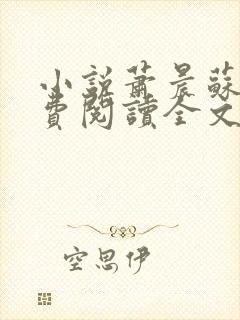 小說蕭晨蘇
費閱讀全文
空思伊